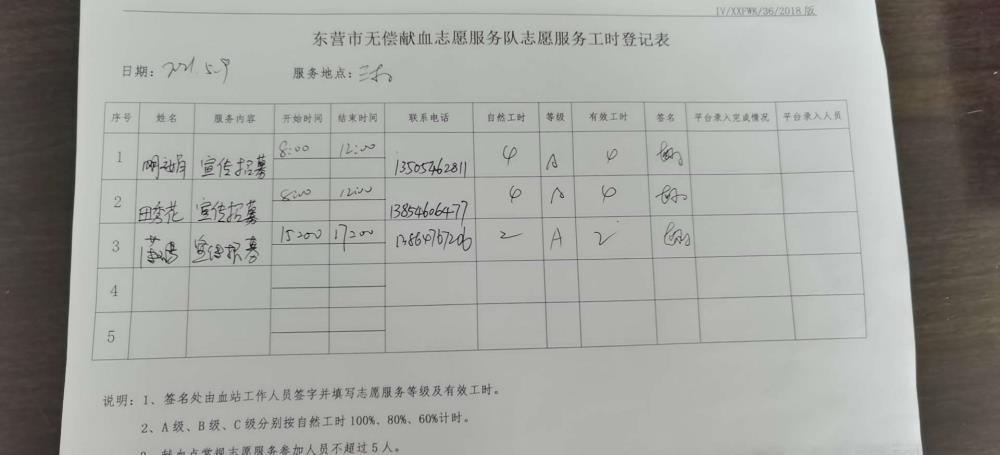 IV/XXFWK/36/2018版
东营市无偿献血志愿服务队志愿服务工时登记表
日期：2021.5.9 服务地点：
序号 姓名 服务内容 开始时间 结束时间 联系电话 自然工时 等级 有效工时 签名 平台录入完成情况 平台录入人员
1 宣传招募 8:00 12:00 13505462811 4 A 4
2 田秀花 宣传招募 8:00 12:00 13854606477 4 A 4
3 宣传招募 15:00 17:00 13864767206 2 A 2
4
5
说明：1、签名处由血站工作人员签字并填写志愿服务等级及有效工时。
2、A级、B级、C级分别按自然工时100%、80%、60%计时。
3、献血点常规志愿服务参加人员不超过5人。